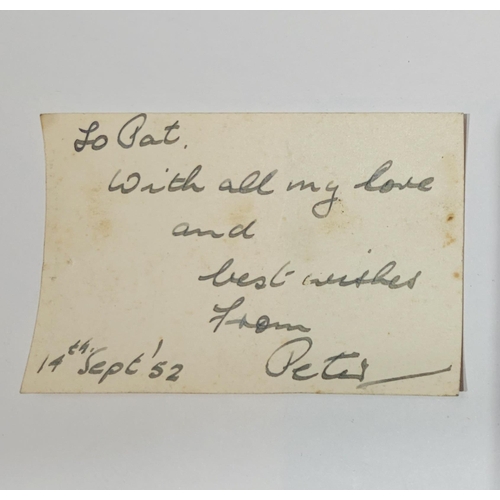 To Pat.
With all my love
and
best wishes
From
Peter
14th. Sept' '52